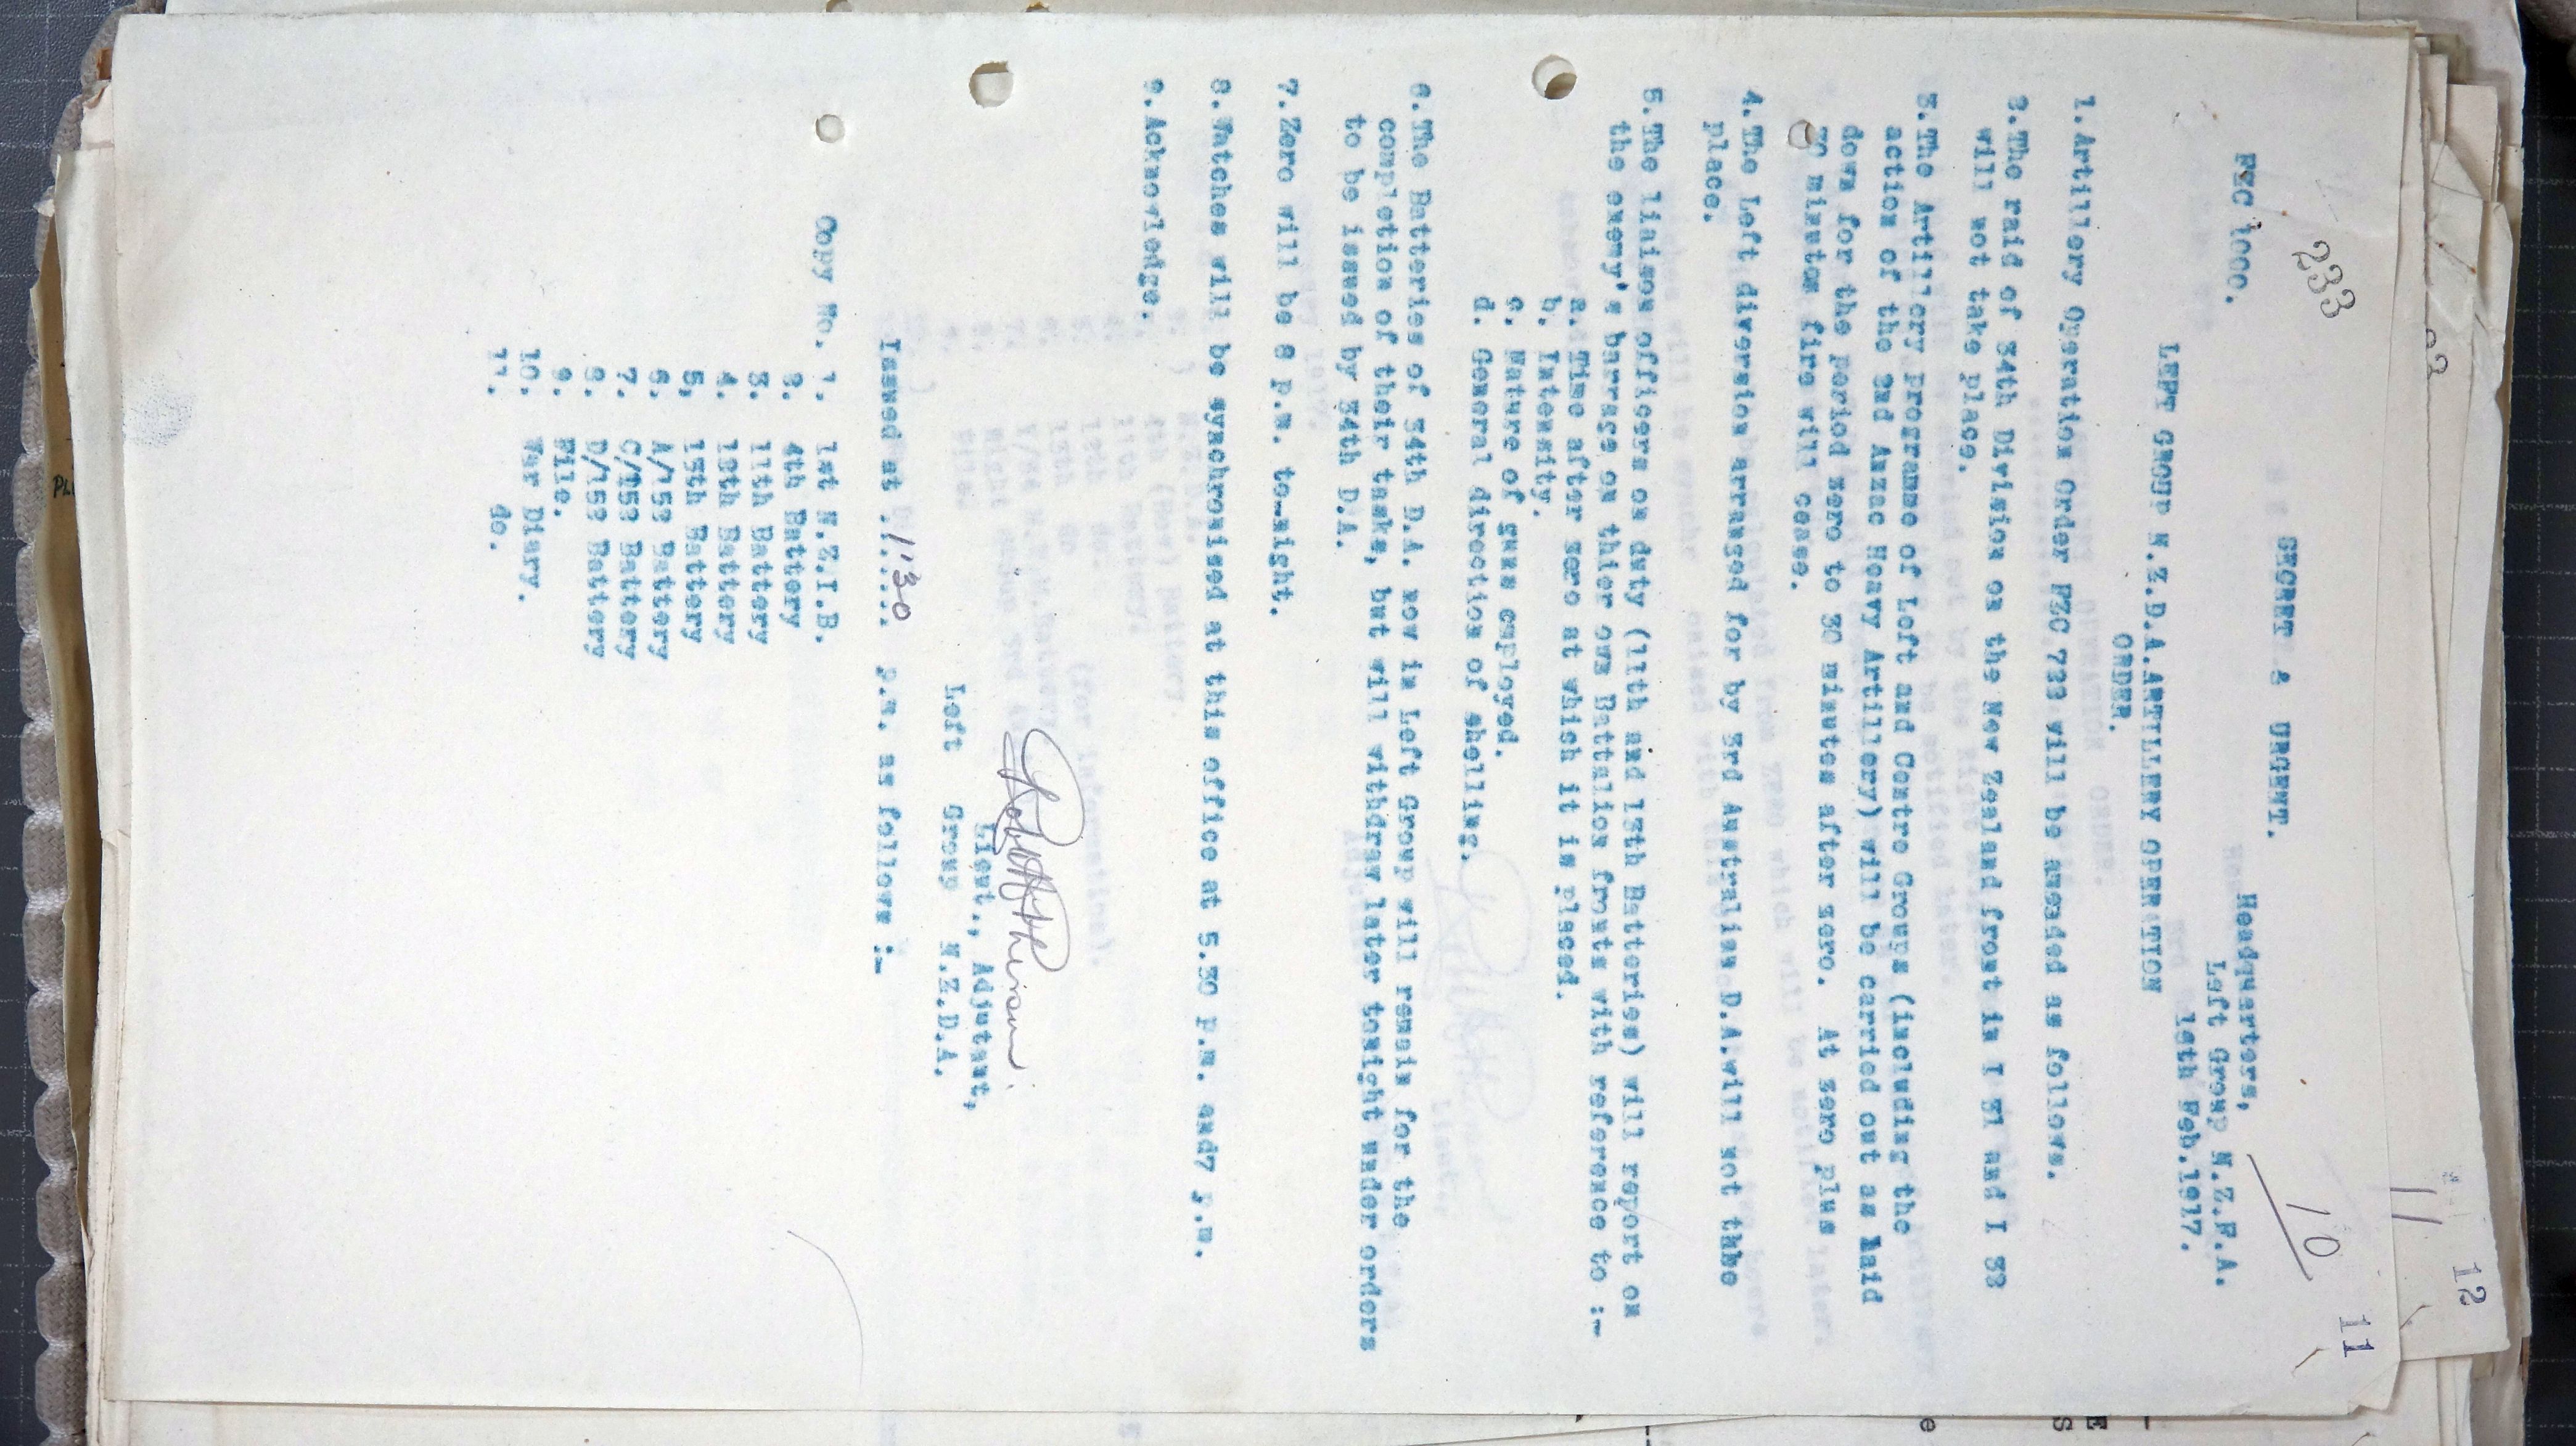 233
SECRET & URGENT.
10
11
12
11
FZC 1000.
Headquarters,
Left Group N.Z.F.A.
Feb.1917.
LEFT GROUP N.Z.D.A.ARTILLERY OPERATION
ORDER.
1. Artillery Operation Order FZC 723 will be amended as follows.
2. The raid of 34th Division on the New Zealand front in I 31 and I 32
will not take place.
3. The Artillery programme of Left and Centre Groups (including the
action of the 2nd Anzac Heavy Artillery) will be carried out as laid
down for the period zero to 30 minutes after zero. At zero plus
30 minutes fire will cease.
4. The Left diversion arranged for by 3rd Australian D.A.will not take
place.
5. The liaison officers on duty (11th and 13th Batteries) will report on
the enemy's barrage on thier own Battalion fronts with reference to :-
a. Time after zero at which it is placed.
b. Intensity.
c. Nature of guns employed.
d. General direction of shelling.
6. The Batteries of 34th D.A. now in Left Group will remain for the
completion of their tasks, but will withdraw later tonight under orders
to be issued by 34th D.A.
7. Zero will be 8 p.m. to-night.
8. Watches will be synchronised at this office at 5.30 p.m. and7 p.m.
9. Acknowledge.
Lieut., Adjutant,
Left Group N.Z.D.A.
Issued at 1'30 p.m. as follows :-
Copy No. 1. 1st N.Z.I.B.
2. 4th Battery
3. 11th Battery
4. 12th Battery
5. 13th Battery
6. A/152 Battery
7. C/152 Battery
8. D/152 Battery
9. File.
10. War Diary.
11. do.